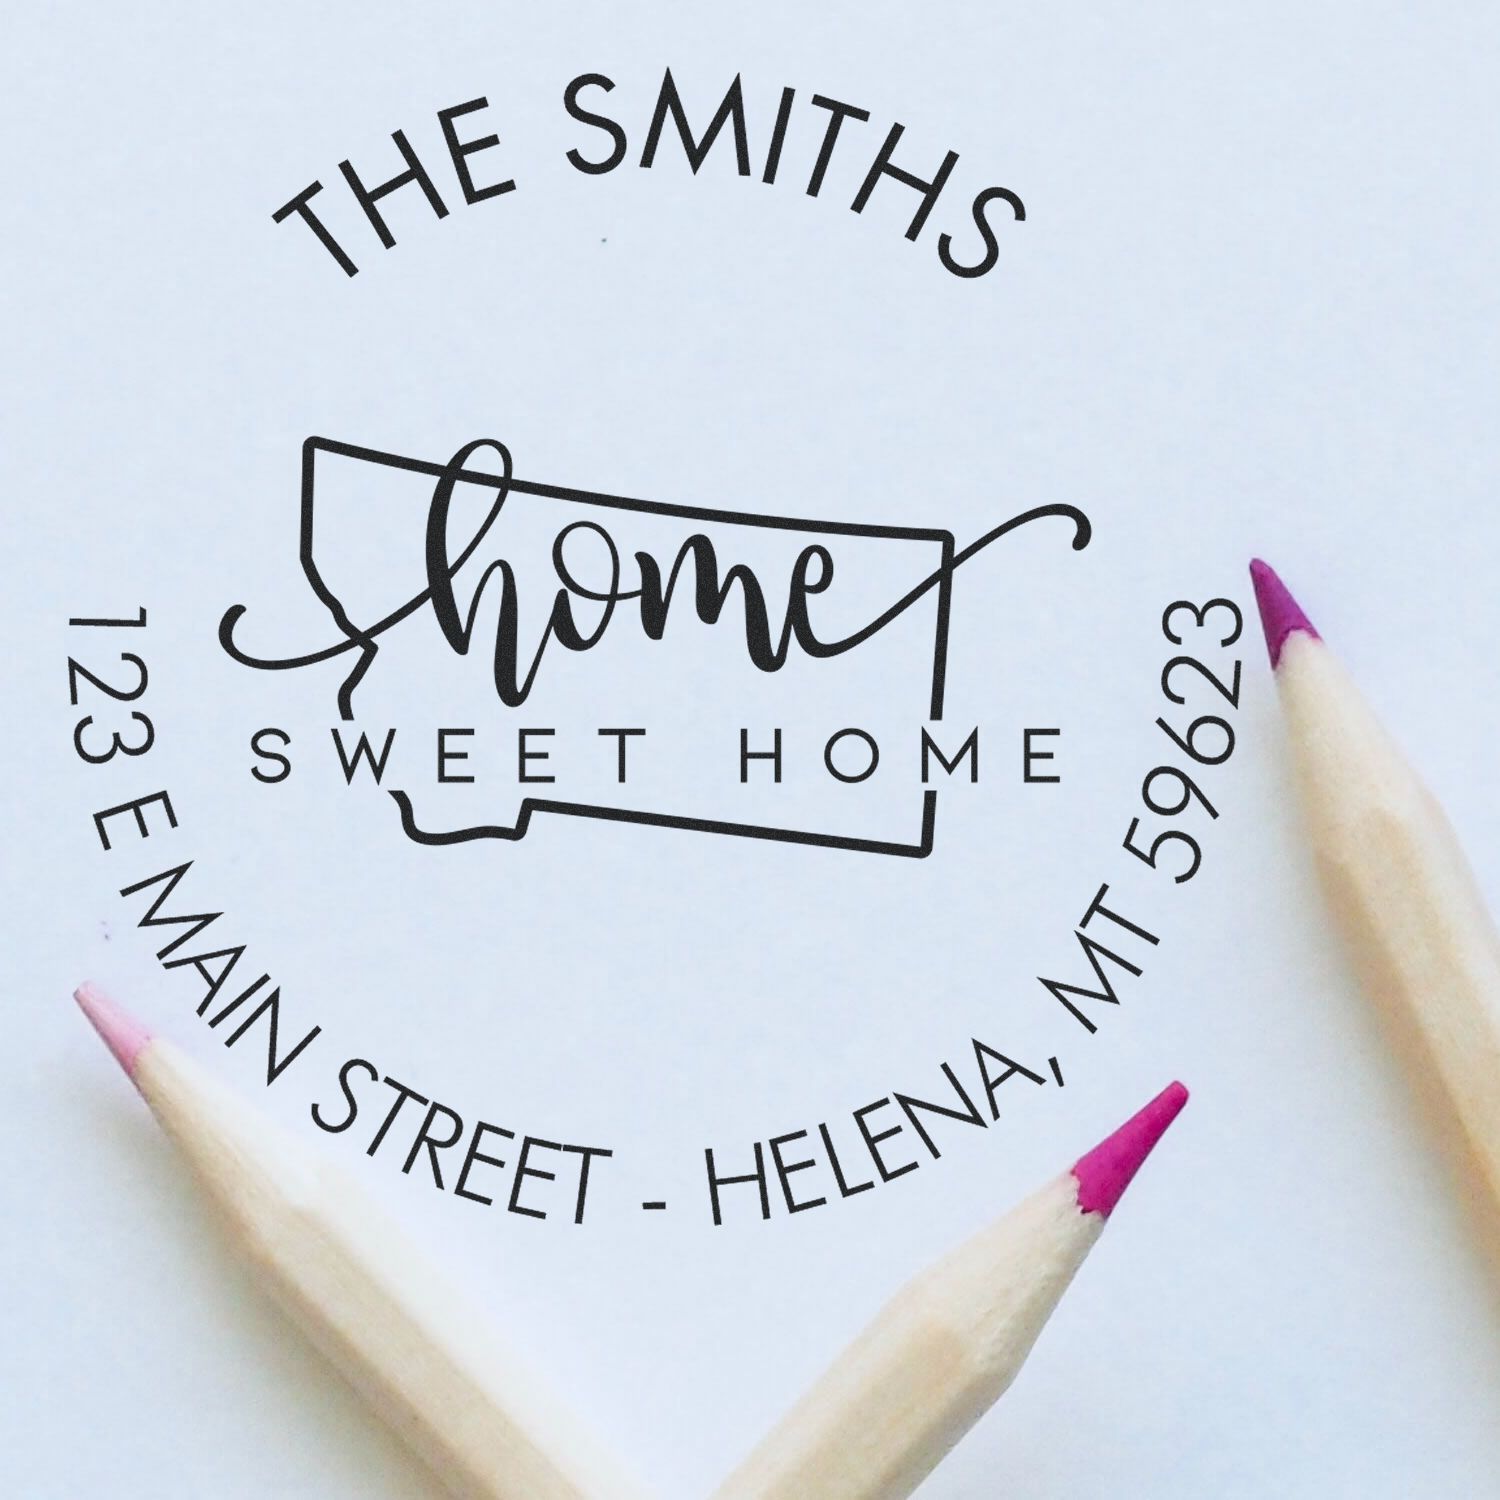 THE SMITHS
home
SWEET HOME
123 E MAIN STREET - HELENA, MT 59623